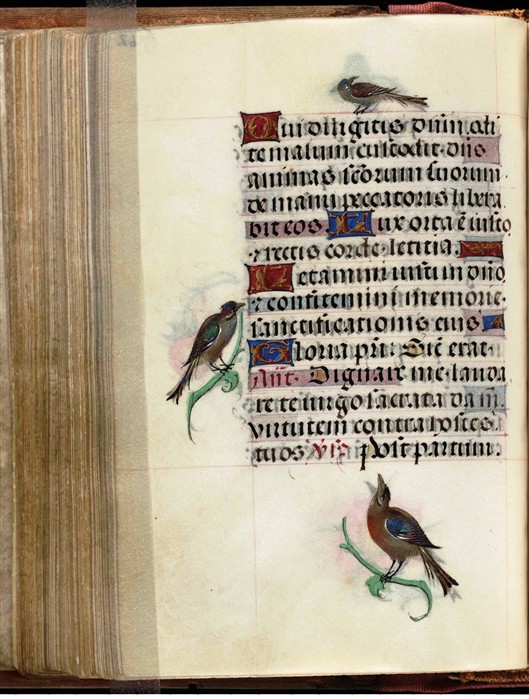 Qui diligitis dñm odi
te malum custodit dñs
animas scõrum suorum.
de manu peccatoris libera
bit eos. Lux orta ẽ iusto
⁊ rectis corde letitia.
Letamini iusti in dño
⁊ confitemini memorie.
sanctificationis eius
Gloria pri. Sic̃ erat.
Añt. Dignare me lauda
re te uirgo sacrata da m̃.
virtutem contra hostes
tuos. Post partum.